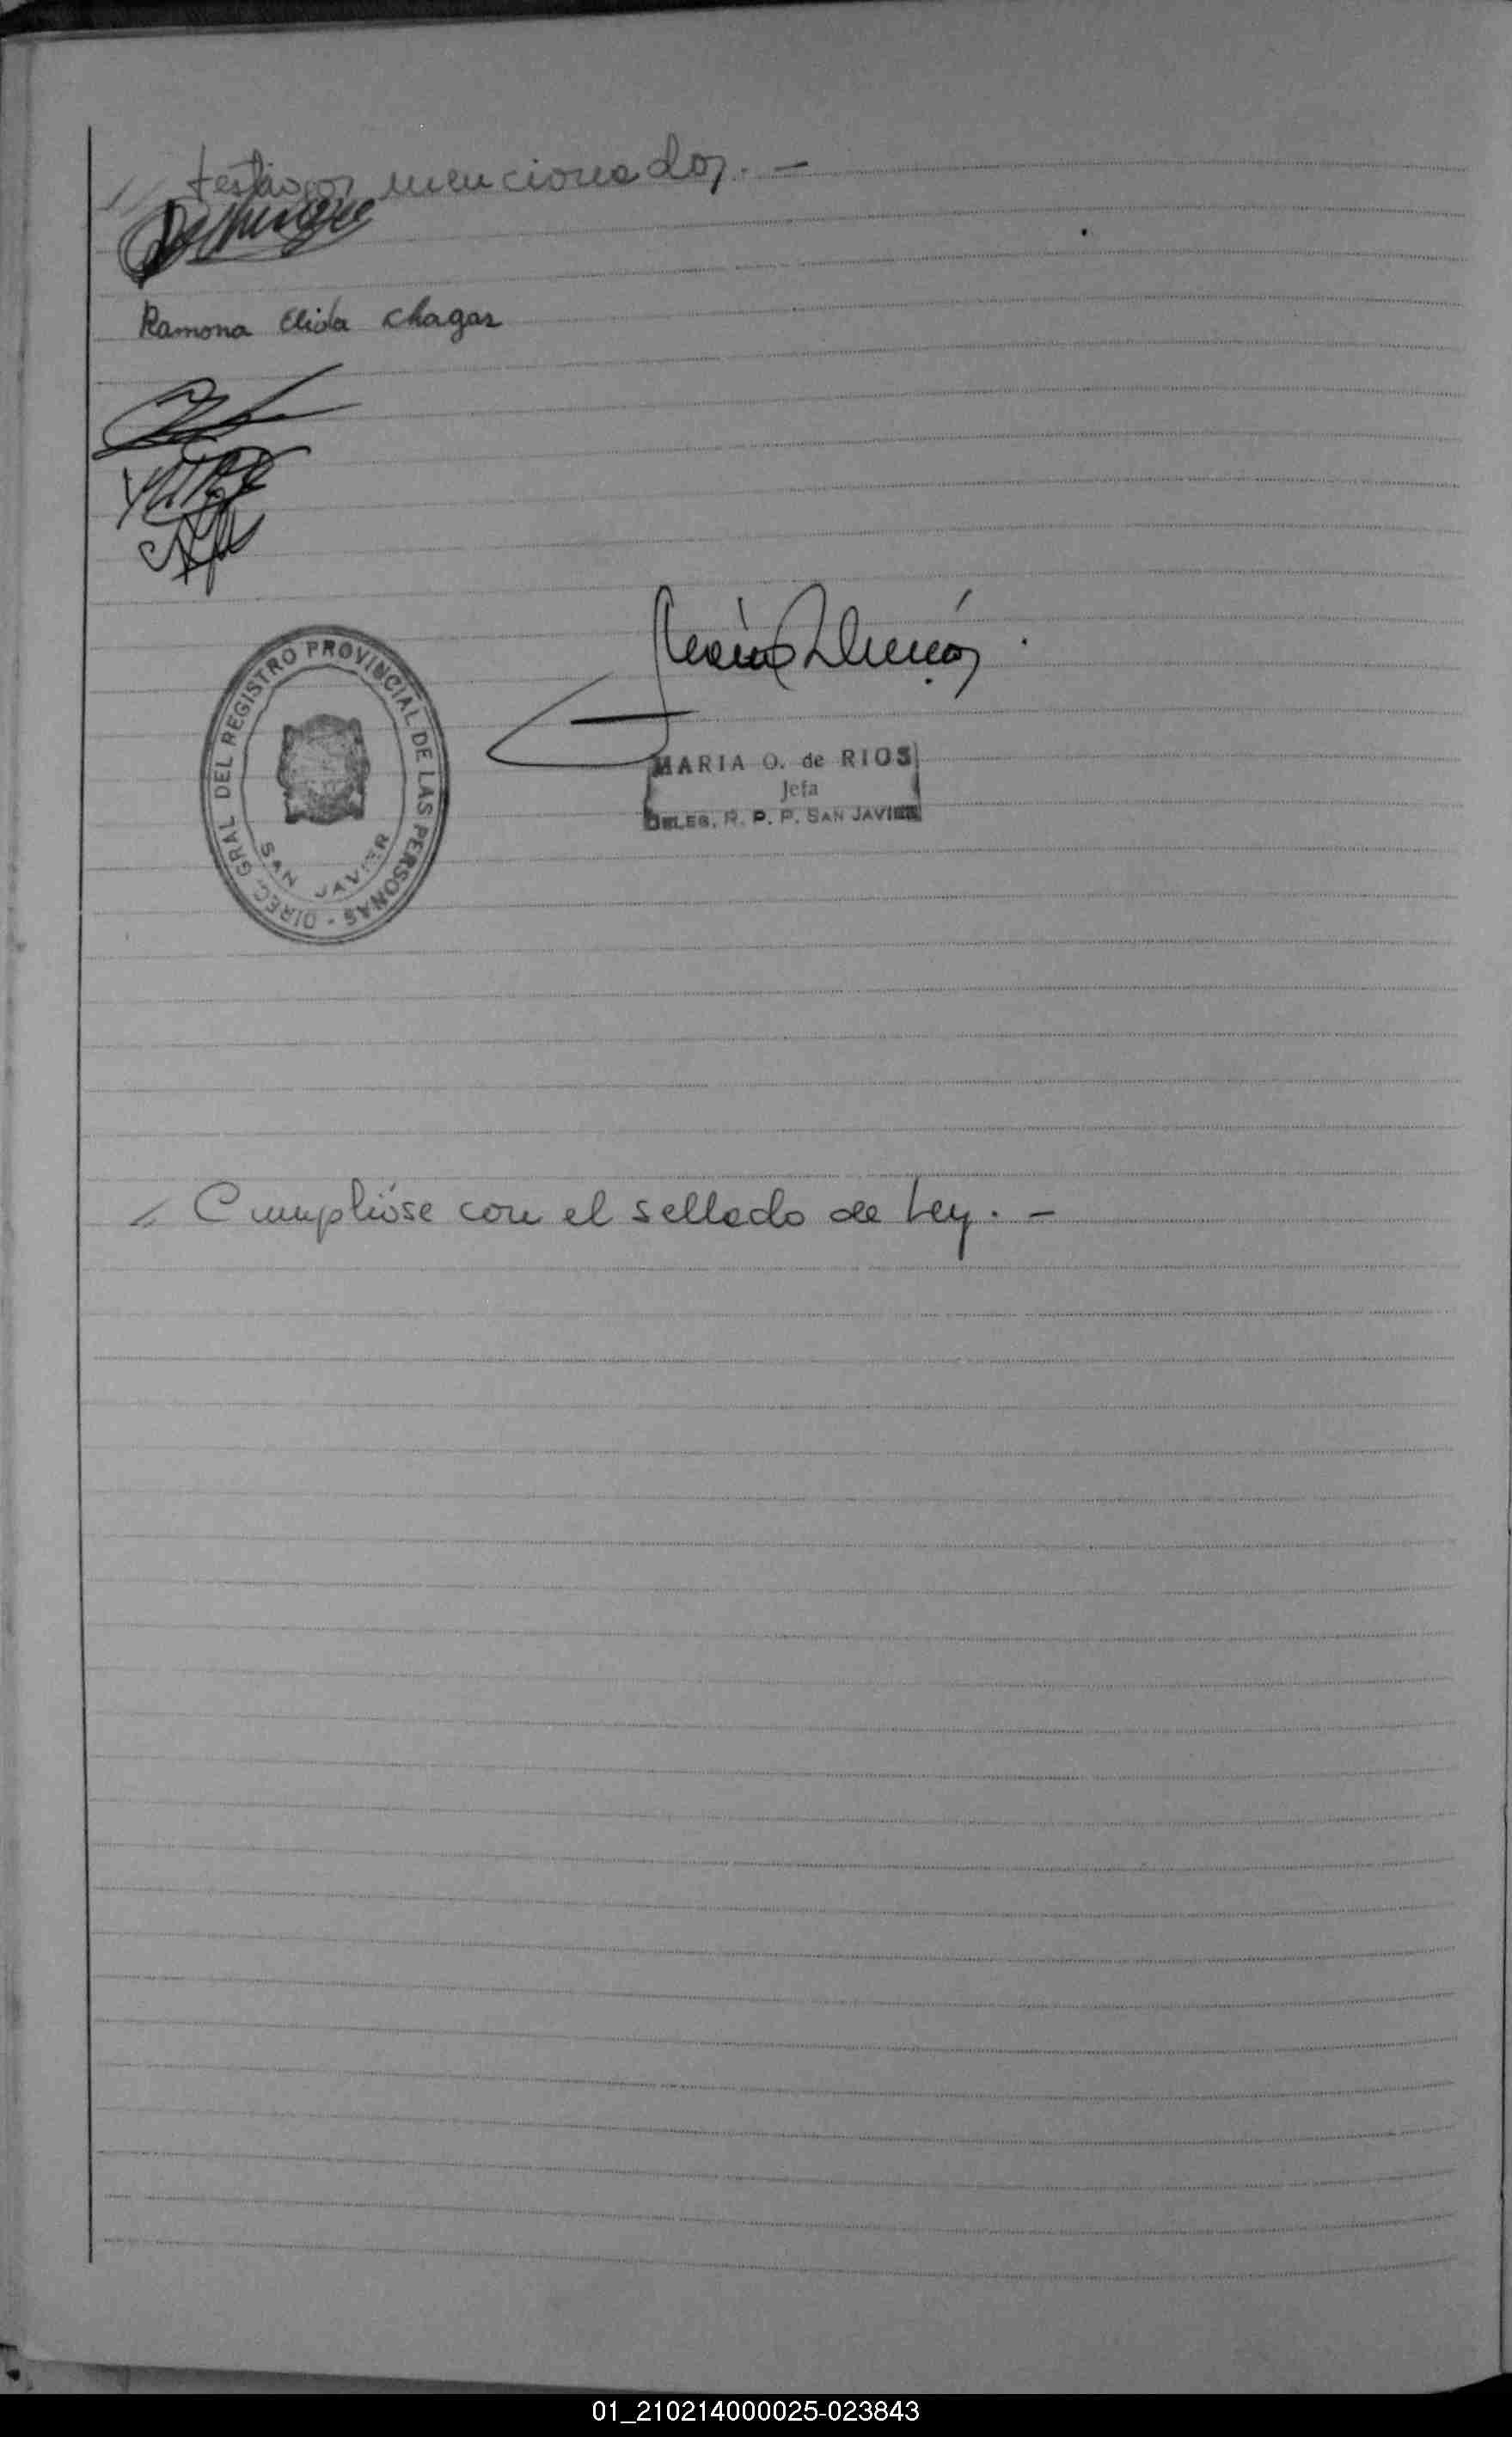 // testigos mencionados. -
Ramona Elida Chagas
DIREC. GRAL DEL REGISTRO PROVINCIAL DE LAS PERSONAS -
SAN JAVIER
MARIA O. de RIOS
Jefa
DELEG. R. P. P. SAN JAVIER
// Cumplióse con el sellado de Ley. -
01_210214000025-023843